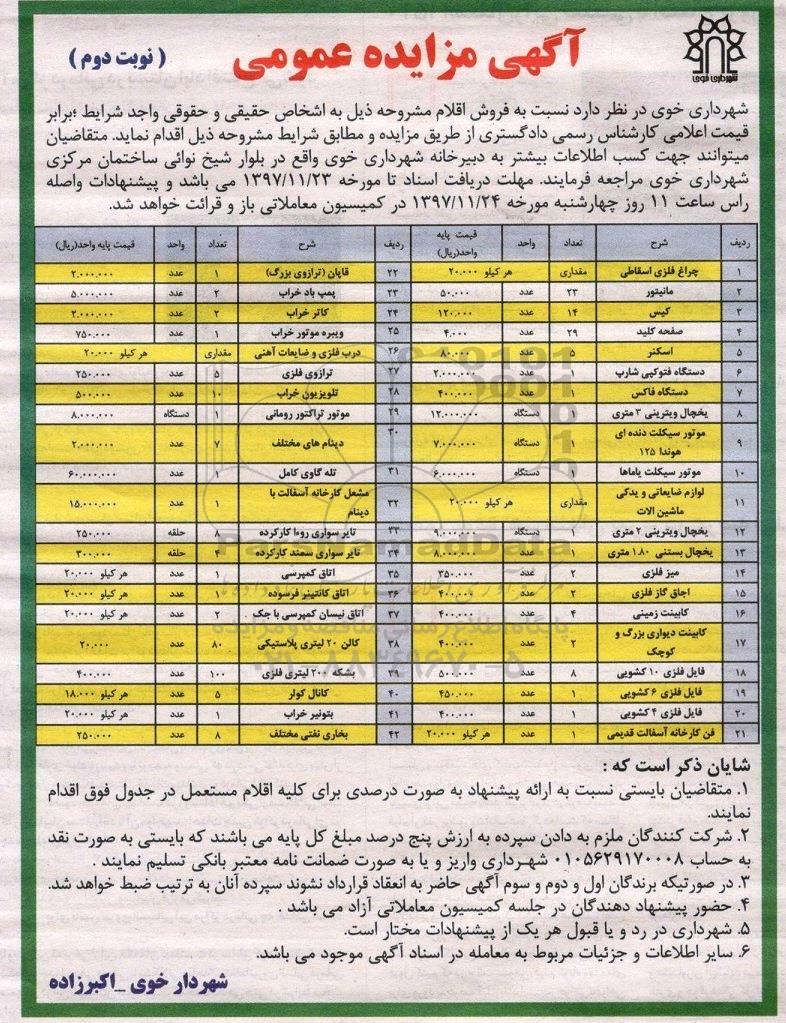 شهرداری خوی
آگهی مزایده عمومی
( نوبت دوم )
شهرداری خوی در نظر دارد نسبت به فروش اقلام مشروحه ذیل به اشخاص حقیقی و حقوقی واجد شرایط ؛برابر
قیمت اعلامی کارشناس رسمی دادگستری از طریق مزایده و مطابق شرایط مشروحه ذیل اقدام نماید. متقاضیان
میتوانند جهت کسب اطلاعات بیشتر به دبیرخانه شهرداری خوی واقع در بلوار شیخ نوائی ساختمان مرکزی
شهرداری خوی مراجعه فرمایند. مهلت دریافت اسناد تا مورخه ۱۳۹۷/۱۱/۲۳ می باشد و پیشنهادات واصله
راس ساعت ۱۱ روز چهارشنبه مورخه ۱۳۹۷/۱۱/۲۴ در کمیسیون معاملاتی باز و قرائت خواهد شد.
ردیف شرح تعداد واحد قیمت پایه واحد(ریال) ردیف شرح تعداد واحد قیمت پایه واحد(ریال)
۱ چراغ فلزی اسقاطی مقداری هر کیلو ۲۰.۰۰۰ ۲۲ قاپان (ترازوی بزرگ) ۱ عدد ۲.۰۰۰.۰۰۰
۲ مانیتور ۲۳ عدد ۵۰.۰۰۰ ۲۳ پمپ باد خراب ۲ عدد ۵.۰۰۰.۰۰۰
۳ کیس ۱۴ عدد ۱۲۰.۰۰۰ ۲۴ کاتر خراب ۲ عدد ۲.۰۰۰.۰۰۰
۴ صفحه کلید ۲۹ عدد ۴.۰۰۰ ۲۵ ویبره موتور خراب ۱ عدد ۷۵۰.۰۰۰
۵ اسکنر ۵ عدد ۸۰.۰۰۰ ۲۶ درب فلزی و ضایعات آهنی مقداری هر کیلو ۲۰.۰۰۰
۶ دستگاه فتوکپی شارپ ۱ عدد ۲.۰۰۰.۰۰۰ ۲۷ ترازوی فلزی ۵ عدد ۲۵۰.۰۰۰
۷ دستگاه فاکس ۱ عدد ۴۰۰.۰۰۰ ۲۸ تلویزیون خراب ۱۰ عدد ۵۰۰.۰۰۰
۸ یخچال ویترینی ۳ متری ۱ دستگاه ۱۲.۰۰۰.۰۰۰ ۲۹ موتور تراکتور رومانی ۱ دستگاه ۸.۰۰۰.۰۰۰
۹ موتور سیکلت دنده ای هوندا ۱۲۵ ۱ دستگاه ۷.۰۰۰.۰۰۰ ۳۰ دینام های مختلف ۷ عدد ۲.۰۰۰.۰۰۰
۱۰ موتور سیکلت یاماها ۱ دستگاه ۶.۰۰۰.۰۰۰ ۳۱ تله گاوی کامل ۱ عدد ۶۰.۰۰۰.۰۰۰
۱۱ لوازم ضایعاتی و یدکی ماشین الات مقداری هر کیلو ۲۰.۰۰۰ ۳۲ مشعل کارخانه آسفالت با دینام ۱ عدد ۱۵.۰۰۰.۰۰۰
۱۲ یخچال ویترینی ۲ متری ۱ دستگاه ۹.۰۰۰.۰۰۰ ۳۳ تایر سواری روءا کارکرده ۸ حلقه ۲۵۰.۰۰۰
۱۳ یخچال بستنی ۱.۸۰ متری ۱ عدد ۸.۰۰۰.۰۰۰ ۳۴ تایر سواری سمند کارکرده ۴ حلقه ۳۰۰.۰۰۰
۱۴ میز فلزی ۲ عدد ۳۵۰.۰۰۰ ۳۵ اتاق کمپرسی ۱ عدد هر کیلو ۲۰.۰۰۰
۱۵ اجاق گاز فلزی ۲ عدد ۴۰۰.۰۰۰ ۳۶ اتاق کانتینر فرسوده ۱ عدد هر کیلو ۲۰.۰۰۰
۱۶ کابینت زمینی ۴ عدد ۴۰۰.۰۰۰ ۳۷ اتاق نیسان کمپرسی با جک ۲ عدد هر کیلو ۲۰.۰۰۰
۱۷ کابینت دیواری بزرگ و کوچک ۲ عدد ۴۰۰.۰۰۰ ۳۸ کالن ۲۰ لیتری پلاستیکی ۸۰ عدد ۲۰.۰۰۰
۱۸ فایل فلزی ۱۰ کشویی ۸ عدد ۵۰۰.۰۰۰ ۳۹ بشکه ۲۰۰ لیتری فلزی ۱۰۰ عدد ۴۰۰.۰۰۰
۱۹ فایل فلزی ۶ کشویی ۱ عدد ۴۵۰.۰۰۰ ۴۰ کانال کولر ۵ عدد هر کیلو ۱۸.۰۰۰
۲۰ فایل فلزی ۴ کشویی ۱ عدد ۴۰۰.۰۰۰ ۴۱ بتونیر خراب ۱ عدد هر کیلو ۲۰.۰۰۰
۲۱ فن کارخانه آسفالت قدیمی ۱ عدد هر کیلو ۲۰.۰۰۰ ۴۲ بخاری نفتی مختلف ۸ عدد ۲۵۰.۰۰۰
شایان ذکر است که :
۱. متقاضیان بایستی نسبت به ارائه پیشنهاد به صورت درصدی برای کلیه اقلام مستعمل در جدول فوق اقدام
نمایند.
۲. شرکت کنندگان ملزم به دادن سپرده به ارزش پنج درصد مبلغ کل پایه می باشند که بایستی به صورت نقد
به حساب ۰۱۰۵۶۲۹۱۷۰۰۰۸ شهرداری واریز و یا به صورت ضمانت نامه معتبر بانکی تسلیم نمایند .
۳. در صورتیکه برندگان اول و دوم و سوم آگهی حاضر به انعقاد قرارداد نشوند سپرده آنان به ترتیب ضبط خواهد شد.
۴. حضور پیشنهاد دهندگان در جلسه کمیسیون معاملاتی آزاد می باشد .
۵. شهرداری در رد و یا قبول هر یک از پیشنهادات مختار است.
۶. سایر اطلاعات و جزئیات مربوط به معامله در اسناد آگهی موجود می باشد.
شهردار خوی _اکبرزاده